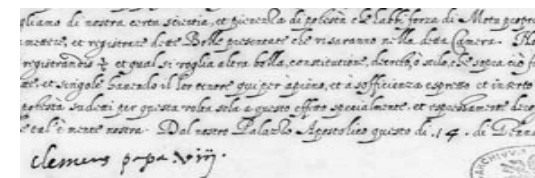 gliamo di nostra certa scientia, et pienezza di potestà che habbi forza di Motu propr
et registrare dette Bolle presentate che vi saranno nella detta Camera.
registrandosi et qual si voglia altra bolla, constitutione, decreto, ò stilo, che sopra ciò f
et singole havendo il lor tenore qui per apieno, et à sofficienza espresso et inserto
potestà sudetti per questa volta sola a questo effetto specialmente, et espressamente dero
e tal'è mente nostra. Dal nostro Palazzo Apostolico questo dì .14. di
clemens papa viij.
ARCHIVV